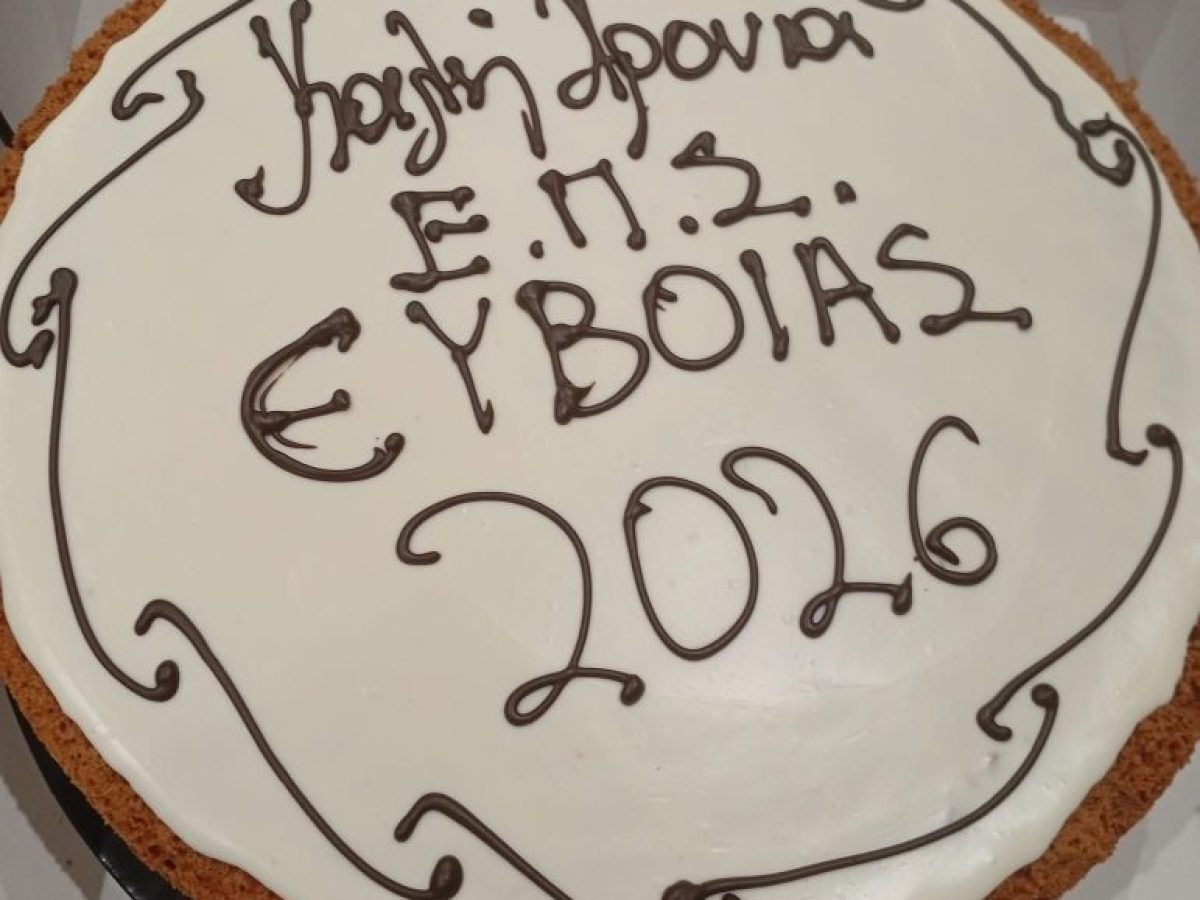 Καλή Χρονια
Ε.Π.Σ.
ΕΥΒΟΙΑΣ
2026